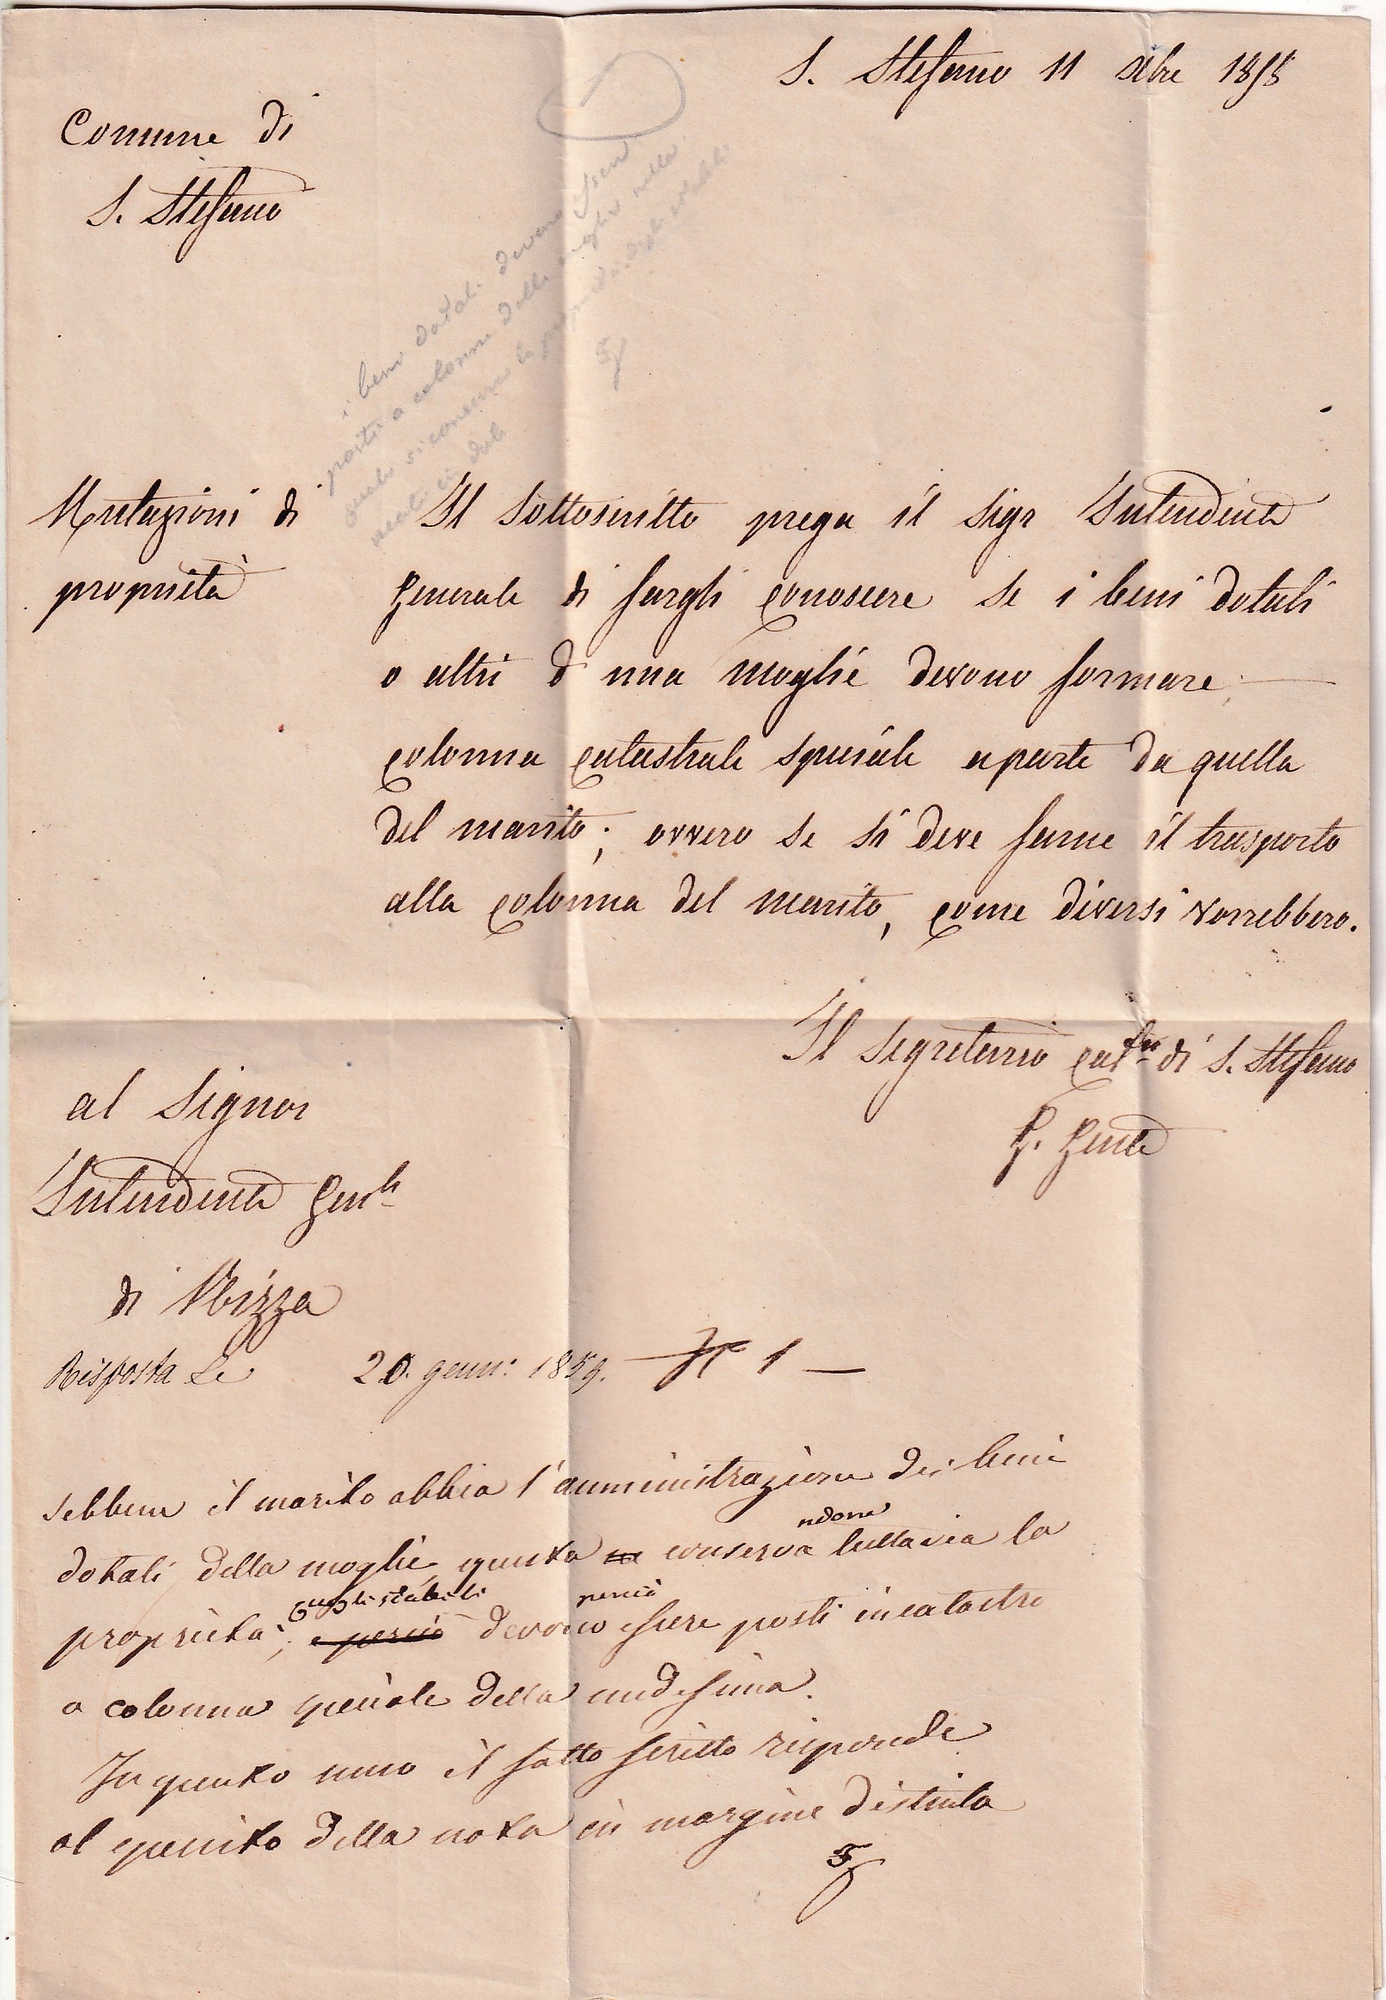 S. Stefano 11 xbre 1858
Comune di
S. Stefano
i beni dotali devono essere
posti a colonna della moglie nella
quale si conserva la proprietà degli stabili
dati in dote
Mutazioni di
proprietà
Il sottoscritto prega il sigr Intendente
Generale di fargli conoscere se i beni dotali
o altri d' una moglie devono formare
colonna catastrale speciale aparte da quella
del marito; ovvero se si deve farne il trasporto
alla colonna del marito, come diversi vorrebbero.
Il Segretario di S. Stefano
G. Gente
al Signor
Intendente Genle
di Nizza
Risposta Le 20. genn: 1859. N 1
sebbene il marito abbia l'amministrazione dei beni
ndone
dotali della moglie, questa ne conserva tuttavia la
degli stabili perciò
proprietà; e perciò devono essere posti in catastro
a colonna speciale della medesima.
In questo senso il sotto scritto risponde
al quesito della nota in margine distinta